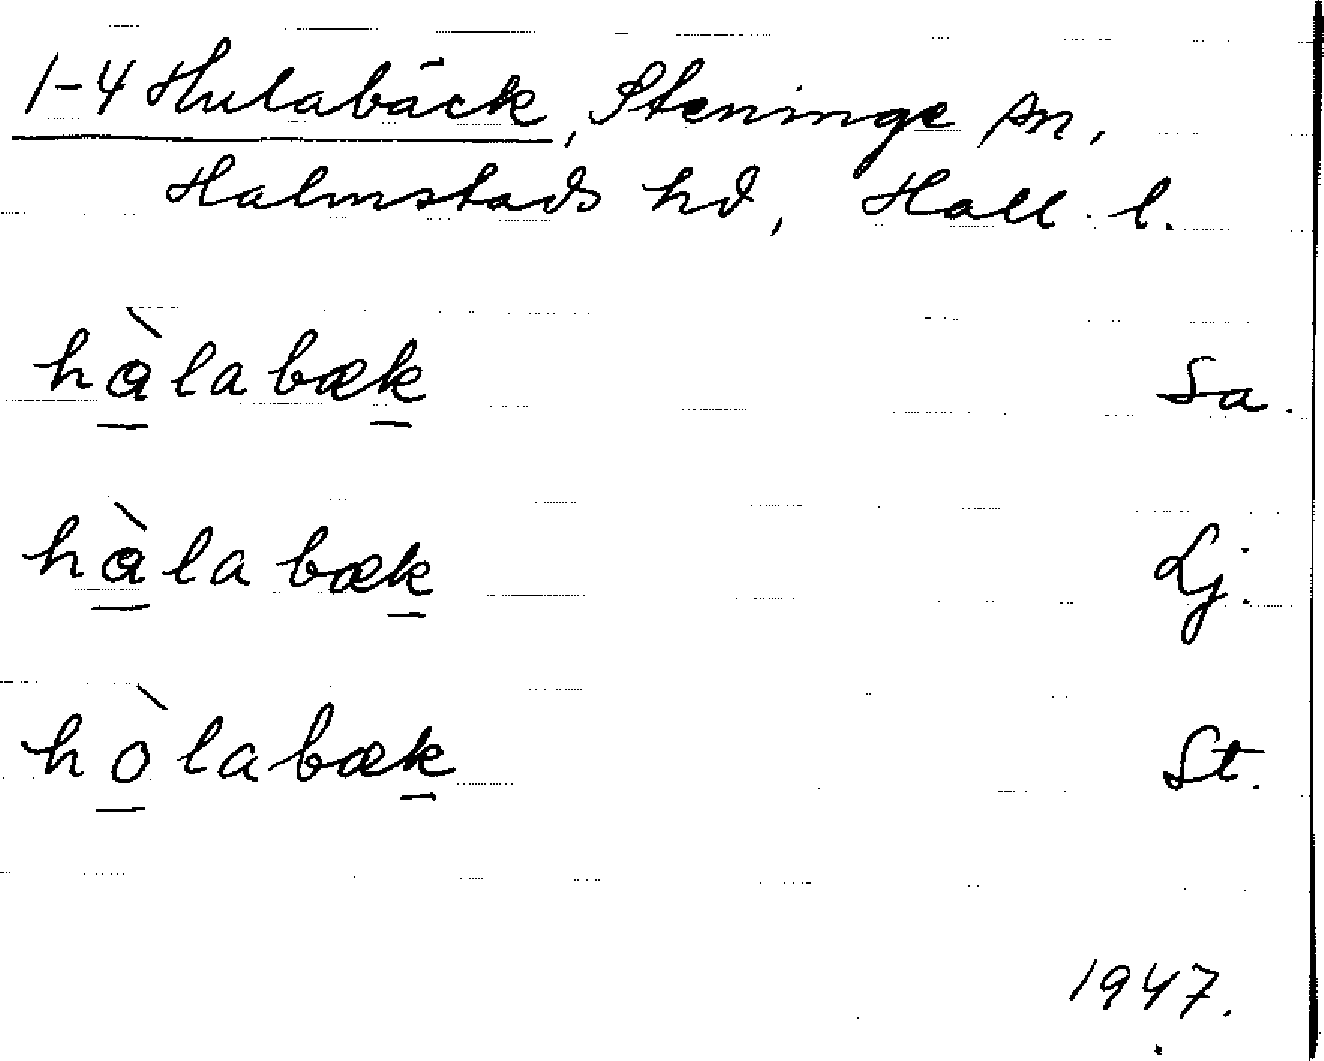 1-4 Hulabäck, Steninge sn,
Halmstads hd, Hall. l.
hàlabæk Sa.
hàlabæk Lj.
hòlabæk St.
1947.